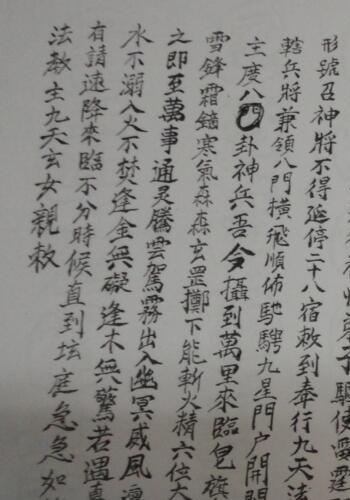 弟子驅使雷霆
形號召神將不得延停二十八宿敕到奉行九天法
轄兵將兼領八門橫飛順佈馳騁九星門户開
主度八四卦神兵吾令攝到萬里來臨皂旗
雪鋒霜鏑寒氣森森玄罡擲下能斬火精六位大
之即至萬事通灵騰雲駕霧出入幽冥威風凛
水不溺入火不焚逢金無礙逢木無驚若遇
有請速降來臨不分時候直到坛庭急急如
法敕主九天玄女親敕